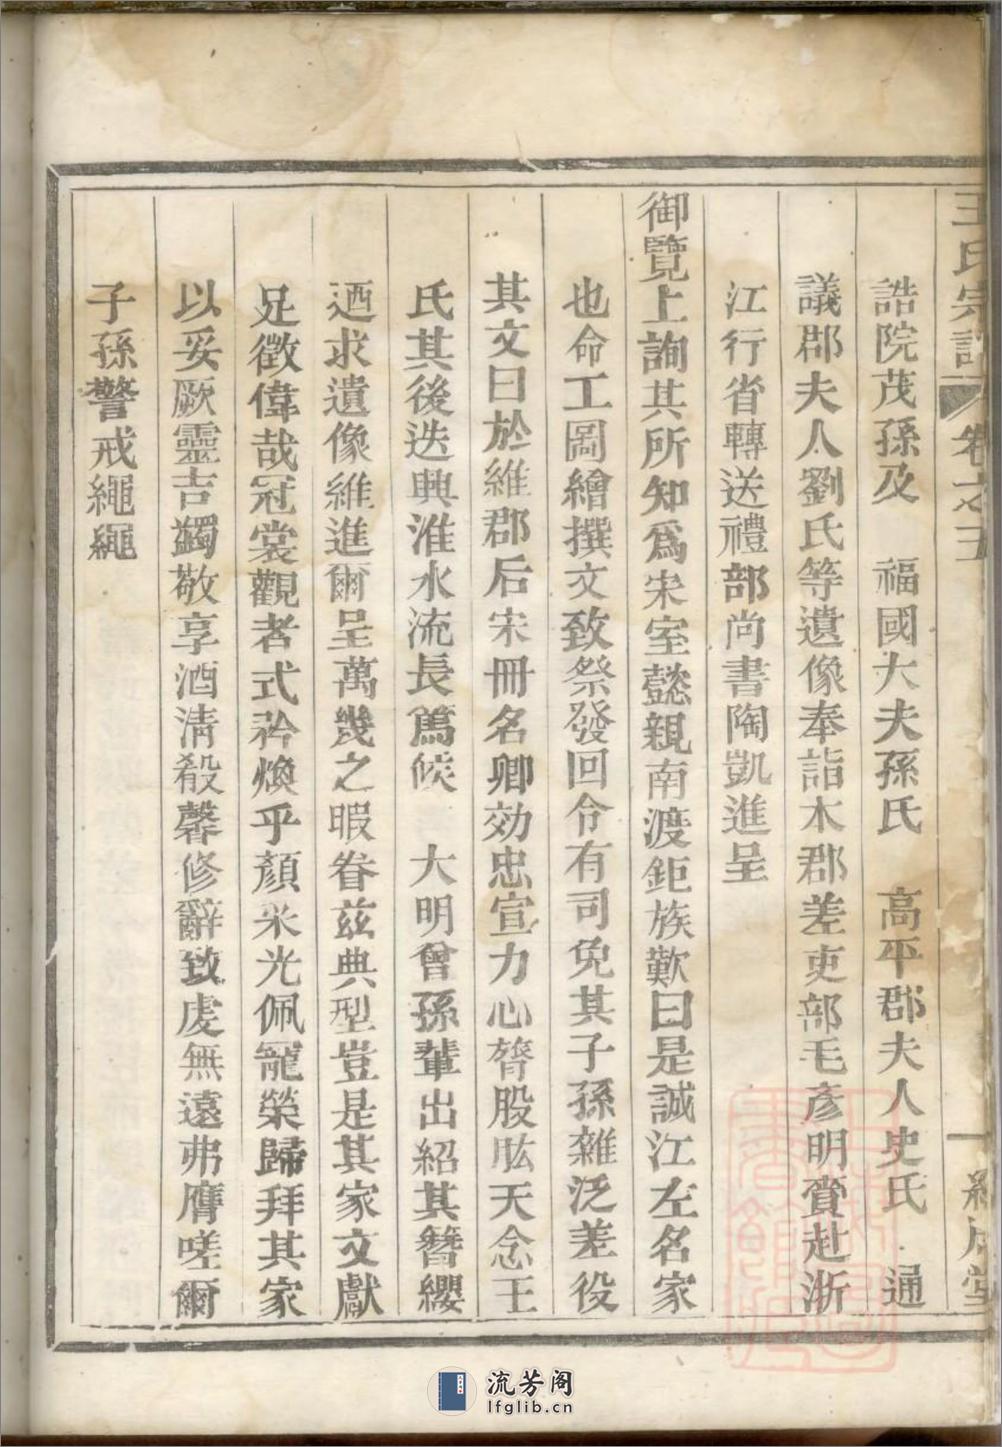 王氏宗譜 卷之五 一
誥院茂孫及 福國大夫孫氏 高平郡夫人史氏 通
議郡夫人劉氏等遺像奉詣木郡差吏部毛彥明賫赴浙
江行省轉送禮部尚書陶凱進呈
御覽上詢其所知爲宋室懿親南渡鉅族歎曰是誠江左名家
也命工圖繪撰文致祭發回令有司免其子孫雜泛差役
其文曰於維郡后宋冊名卿効忠宣力心膂股肱天念王
氏其後迭興淮水流長篤候 大明曾孫輩出紹其簪纓
迺求遺像維進爾呈萬幾之暇眷茲典型豈是其家文獻
足徵偉哉冠裳觀者式衿煥乎顏采光佩寵榮歸拜其家
以妥厥靈吉蠲敬享酒清殽馨修辭致虔無遠弗膺嗟爾
子孫警戒繩繩
流芳阁
lfglib.cn